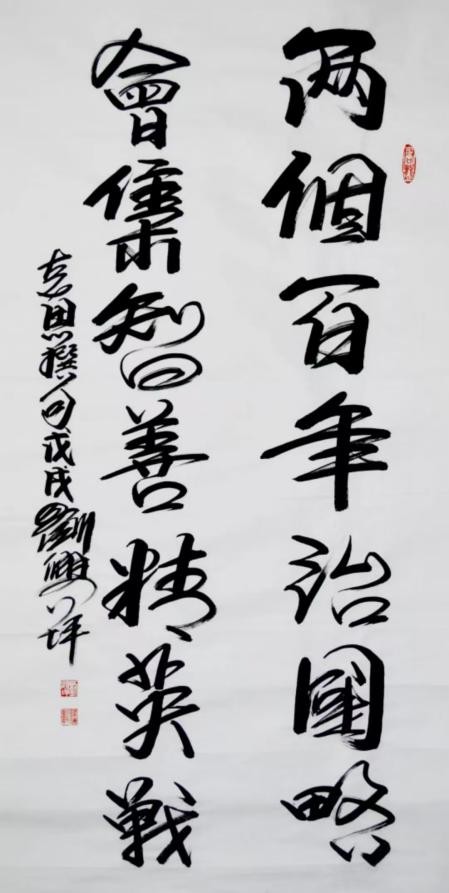 兩個百年治國略
會集智善精英戰
袁恩撰句戊戌劉興坪